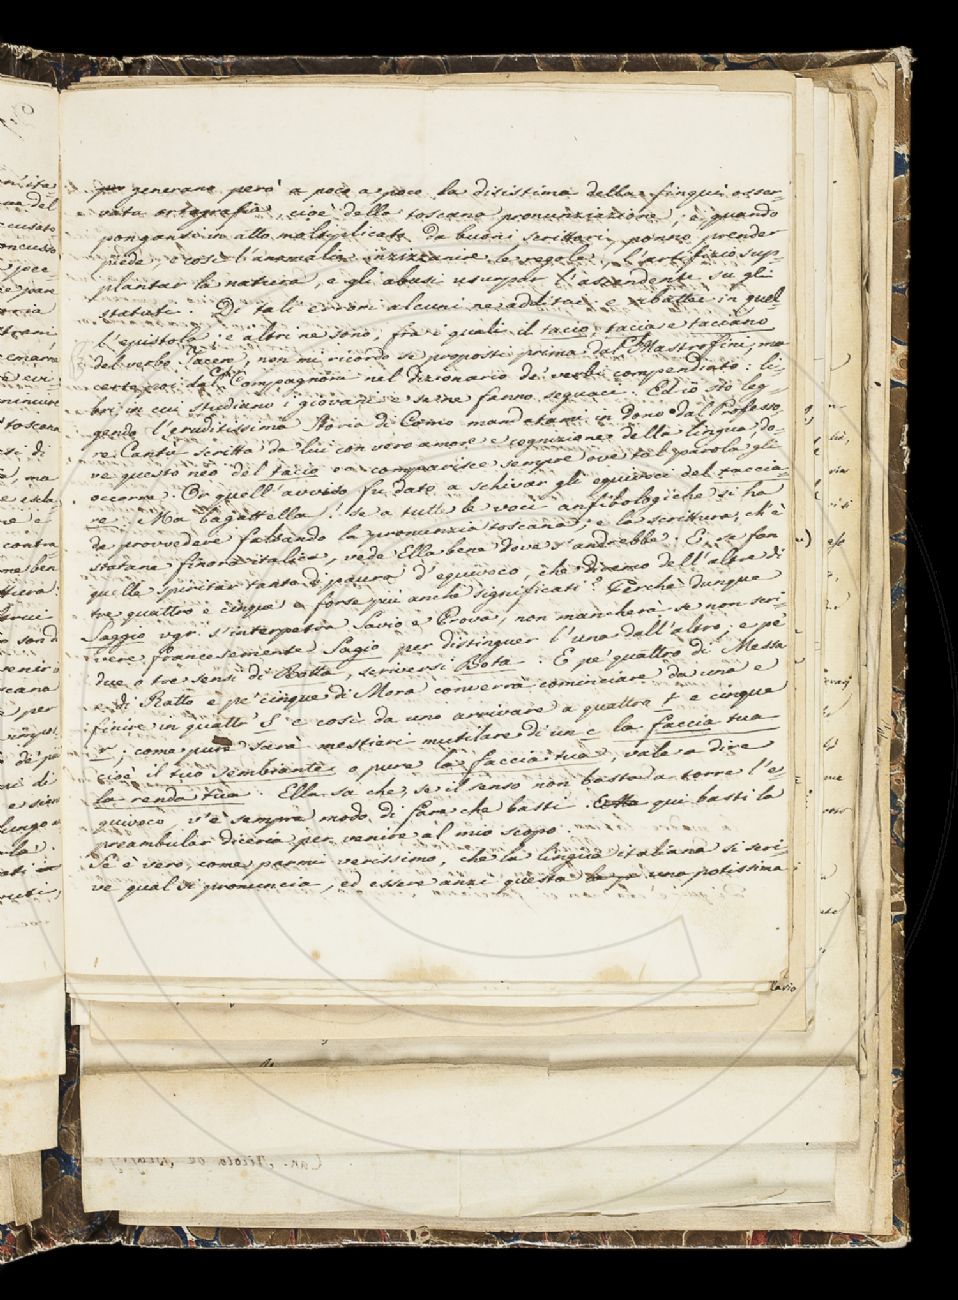 per generano però a poco a poco la disistima della finqui osser-
vata ortografia, cioè della toscana pronunziazione; e quando
pongansi in alto moltiplicate da buoni scrittori ponno prender
piede, e così l'anomalia inzizzanire le regole, l'artifizio sup-
plantar la natura, e gli abusi usurpar l'ascendente su gli
statuti. Di tali errori alcuni ne additai e ribattei in quel-
l'epistola, e altri ne sono, fra i quali il tacio, taccia e tacciano
del verbo Tacere, non mi ricordo se proposti prima dal Mastrofini, ma
certo poi dal Compagnoni nel dizionario de' verbi compendiato: li-
bri, in cui studiano i giovani e se ne fanno seguaci. Ed io sto leg-
gendo l'eruditissima Storia di Como mandatami in dono dal Professo-
re Cantù scritta da lui con vero amore e cognizione della lingua, do-
ve questo neo del tacio ec. comparisce sempre ove tal parola gli
occorra. Or quell'avviso fu dato a schivar gli equivoci del taccia-
re. Ma bagattella! se a tutte le voci anfibologiche si ha
da provvedere falsando la pronunzia toscana e la scrittura, ch'è
statane finora italica, vede Ella bene dove s'andrebbe. E se fan
quelle spiritar tanto di paura d'equivoco, che diremo dell'altre di
tre quattro e cinque e forse più anche significati? Perchè dunque
Saggio vgr. s'interpetra Savio e Prova, non mancherà se non scri-
vere francesemente Sagio per distinguer l'uno dall'altro; e pe'
due o tre sensi di Botta, scriversi Bota. E pe' quattro di Messa
e di Ratto e pe' cinque di Mora converrà cominciare da una e
finire in quattro S e così da uno arrivare a quattro t e cinque
r; come pure sarà mestieri mutilare di un c la faccia tua
cioè il tuo sembiante o pure la faccia tua, vale a dire
la renda tua. Ella sa che, se il senso non basta a torre l'e-
quivoco v'è sempre modo di fare che basti. E qui basti la
preambular diceria per venire al mio scopo.
Se è vero, come parmi verissimo, che la lingua italiana si scri-
ve qual si pronuncia, ed essere anzi questa una potissima